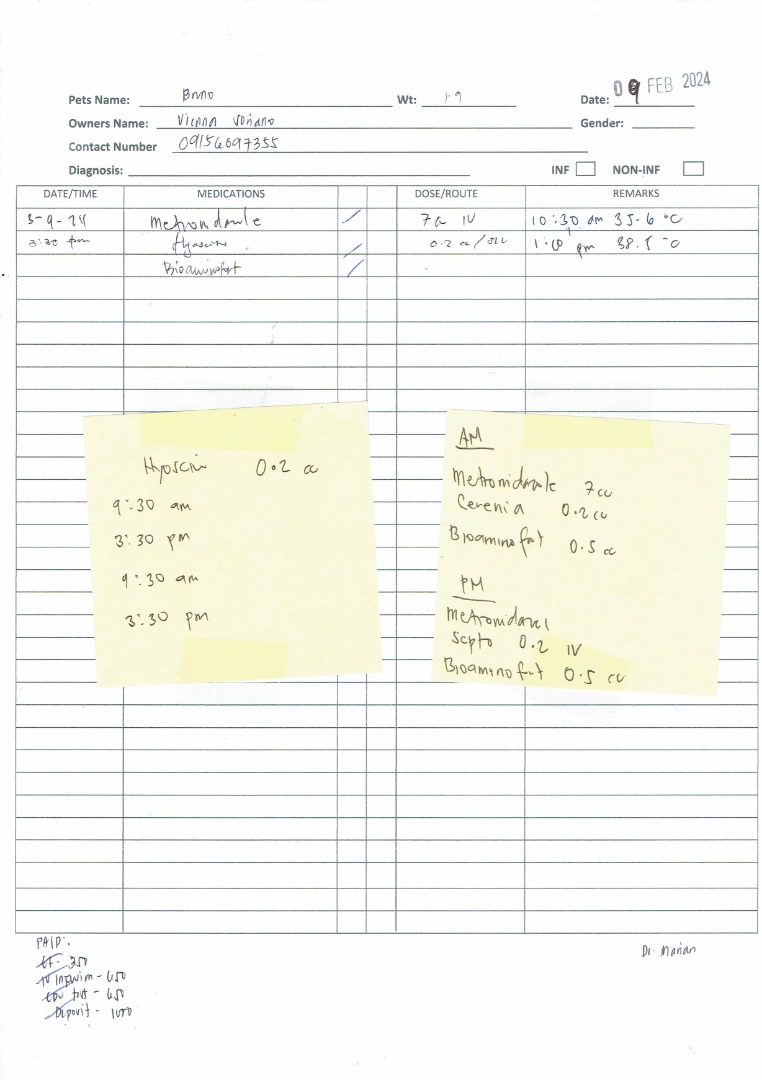 Pets Name: Bruno Wt: 1.9 Date: 09 FEB 2024
Owners Name: Vienna Soriano Gender:
Contact Number 09156097355
Diagnosis: INF NON-INF
DATE/TIME MEDICATIONS DOSE/ROUTE REMARKS
3-9-24 Metronidazole 7cc IV 10:30 am 35.6 °C
3:30 pm Hyoscine 0.2 cc / 1:00 pm 38.5 °C
Bioaminofort
Hyoscin 0.2 cc
9:30 am
3:30 pm
9:30 am
3:30 pm
AM
Metronidazole 7cc
Cerenia 0.2cc
Bioaminofort 0.5 cc
PM
Metronidazol
Septo 0.2 IV
Bioaminofort 0.5 cc
PAID:
350
- 650
CDV test - 650
Deposit - 1000
Dr. Marian